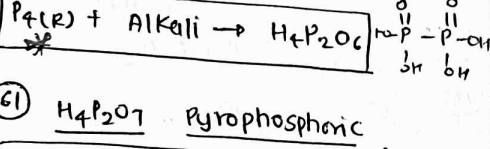 P4(R) + Alkali → H4P2O6
O O
HO-P-P-OH
OH OH
61 H4P2O7 Pyrophosphoric